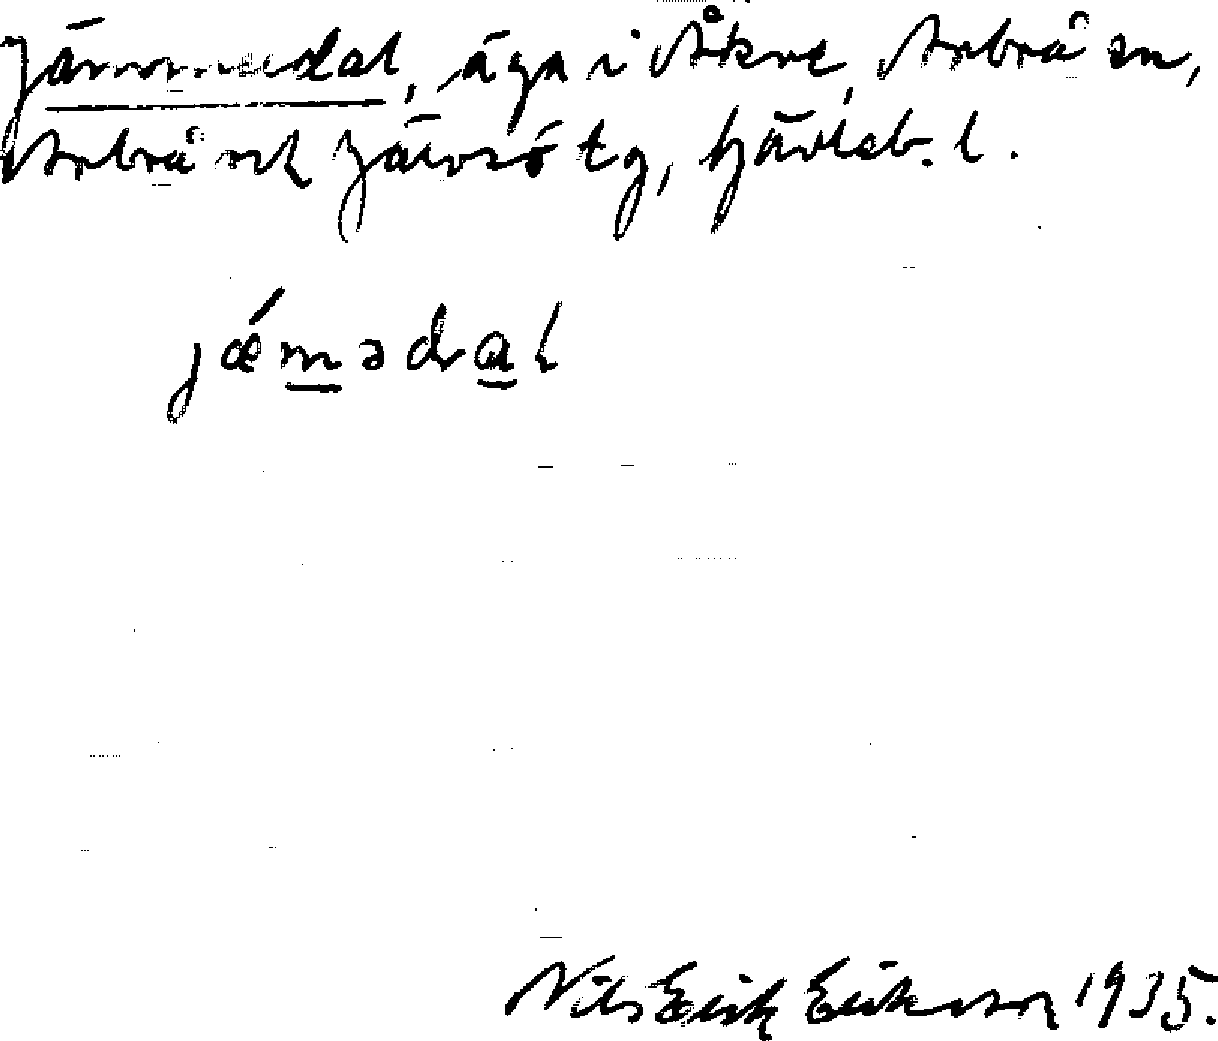 Jämmedal, äga i Åkre, Arbrå sn,
Arbrå och Järvsö tg, Gävleb. l.
jǽmədral
Nils Erik Eriksson 1935.